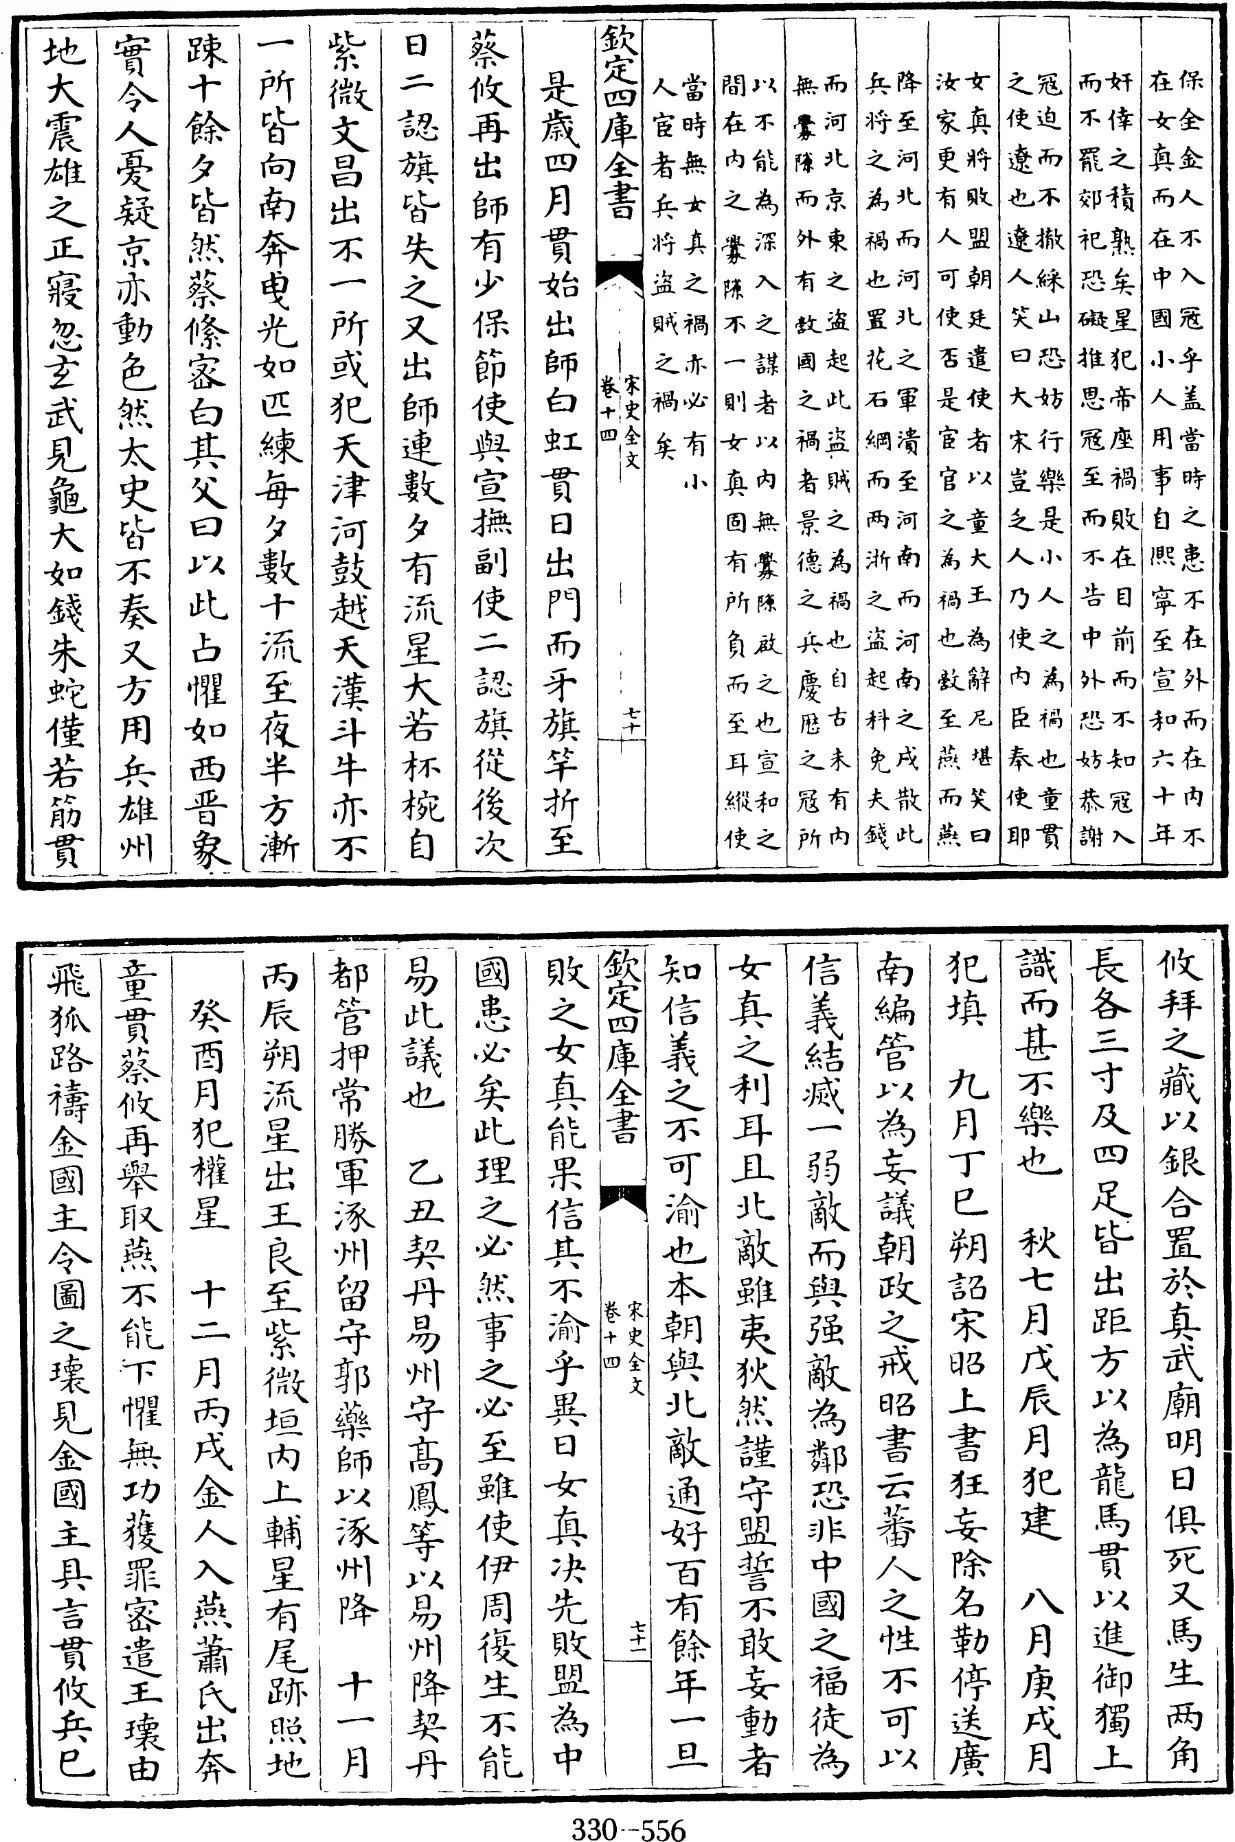 保全金人不入冦乎蓋當時之患不在外而在内不
在女真而在中國小人用事自熙寧至宣和六十年
奸倖之積熟矣星犯帝座禍敗在目前而不知冦入
而不罷郊祀恐礙推恩冦至而不告中外恐妨恭謝
冦迫而不撤綵山恐妨行樂是小人之為禍也童貫
之使遼也遼人笑曰大宋豈乏人乃使内臣奉使耶
女真將敗盟朝廷遣使者以童大王為辭尼堪笑曰
汝家更有人可使否是宦官之為禍也敵至燕而燕
降至河北而河北之軍潰至河南而河南之戍散此
兵將之為禍也置花石綱而兩浙之盜起科免夫錢
而河北京東之盜起此盜賊之為禍也自古未有内
無釁隙而外有敵國之禍者景德之兵慶厯之冦所
以不能為深入之謀者以内無釁隙啟之也宣和之
間在内之釁隙不一則女真固有所負而至耳縱使
當時無女真之禍亦必有小
人宦者兵將盜賊之禍矣
欽定四庫全書
宋史全文
卷十四
七十
是歲四月貫始出師白虹貫日出門而牙旗竿折至
蔡攸再出師有少保節使與宣撫副使二認旗從後次
日二認旗皆失之又出師連數夕有流星大若杯椀自
紫微文昌出不一所或犯天津河鼓越天漢斗牛亦不
一所皆向南奔曳光如匹練每夕數十流至夜半方漸
踈十餘夕皆然蔡絛密白其父曰以此占懼如西晋象
實令人憂疑京亦動色然太史皆不奏又方用兵雄州
地大震雄之正寢忽玄武見龜大如錢朱蛇僅若筋貫
攸拜之藏以銀合置於真武廟明日俱死又馬生两角
長各三寸及四足皆出距方以為龍馬貫以進御獨上
識而甚不樂也　秋七月戊辰月犯建　八月庚戌月
犯填　九月丁巳朔詔宋昭上書狂妄除名勒停送廣
南編管以為妄議朝政之戒昭書云蕃人之性不可以
信義結滅一弱敵而與强敵為鄰恐非中國之福徒為
女真之利耳且北敵雖夷狄然謹守盟誓不敢妄動者
知信義之不可渝也本朝與北敵通好百有餘年一旦
欽定四庫全書
宋史全文
卷十四
七十一
敗之女真能果信其不渝乎異日女真决先敗盟為中
國患必矣此理之必然事之必至雖使伊周復生不能
易此議也　乙丑契丹易州守髙鳳等以易州降契丹
都管押常勝軍涿州留守郭藥師以涿州降　十一月
丙辰朔流星出王良至紫微垣内上輔星有尾跡照地
癸酉月犯權星　十二月丙戌金人入燕蕭氏出奔
童貫蔡攸再舉取燕不能下懼無功獲罪密遣王瓌由
飛狐路禱金國主令圖之瓌見金國主具言貫攸兵已
330--556